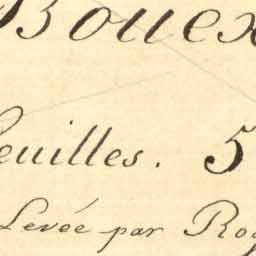 Bouex
feuilles. 5
Levée par Rog